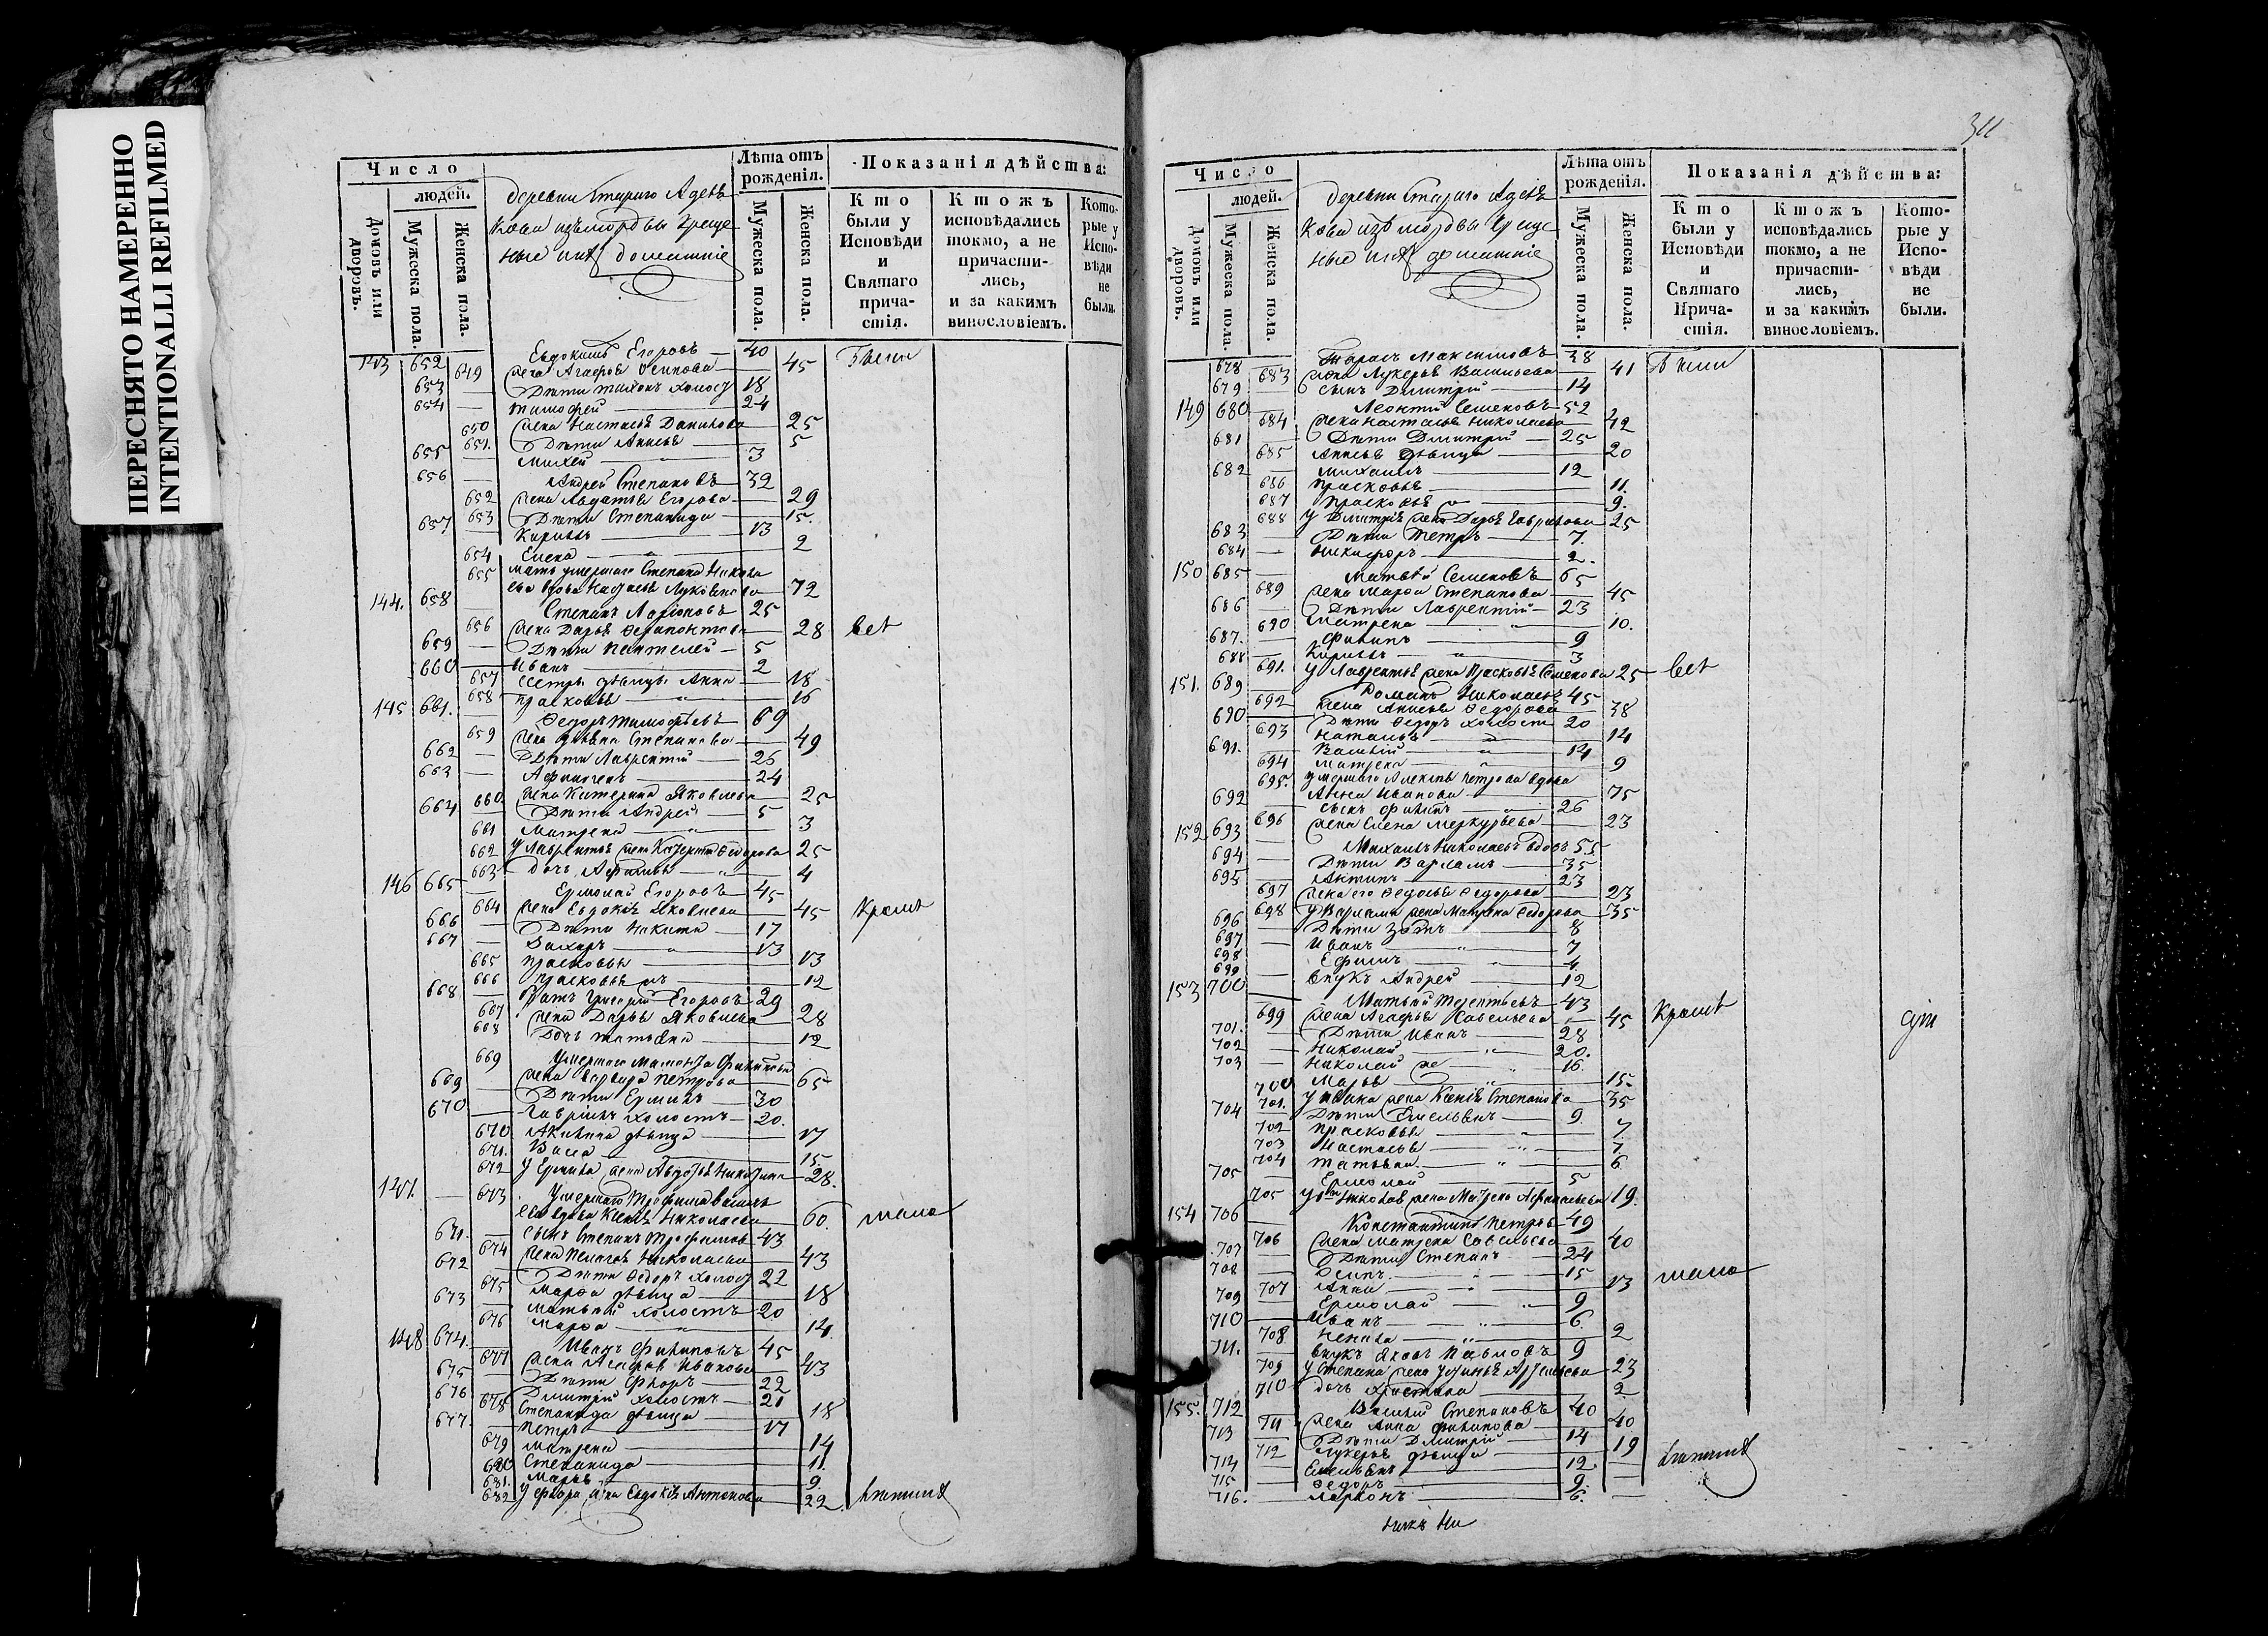 ПЕРЕСНЯТО НАМЕРЕННО
INTENTIONALLI REFILMED
Число
людей.
Домовъ или дворовъ.
Мужеска пола.
Женска пола.
деревни Стараго Адель
кова изъ мордвы Креще
ные домашніе
Лѣта отъ рожденія.
Мужеска пола.
Женска пола.
Показанія дѣйства:
Кто были у Исповѣди и Святаго причастія.
Ктожъ исповѣдались токмо, а не причастились, и за какимъ винословіемъ.
Которые у Исповѣди не были.
143 652 Евдокимъ Егоровъ 40
649 жена Агафья Осипова 45 Были
653 Дѣти Тихонъ холост 18
654 Тимофей 24
650 жена Настасья Данилова 25
651. Дѣти Анисья 5
655 Михей 3
656 Андрей Степановъ 32
652 жена Авдотья Егорова 29
653 Дѣти Степанида 15.
657 Кирилъ 13
654 Елена 2
655 мать умершаго Степана
вдова 72
144. 658 Степанъ Ларіоновъ 25
656 жена Дарья 28 всѣ
659 Дѣти Пантелей 5
660 Иванъ 2
657 Сестры дѣвицы Анна 18
658 Прасковья 16
145 661. Федоръ Тимофѣевъ 69
659 жена Степанова 49
662 Дѣти Лаврентій 26
663 24
660 жена Катерина Яковлева 25
664 Дѣти Андрей 5
661 Матрена 3
662 У Лаврентья жена Федорова 25
663 дочь 4
146 665 Ермолай Егоровъ 45
664 жена Евдокія Яковлева 45 Кромѣ
666 Дѣти Никита 17
667 Захаръ 13
665 Прасковья 13
666 Прасковья 12
668 братъ Григорій Егоровъ 29
667 жена Дарья Яковлева 28
668 Дочь Татьяна 12
669 Умершаго
жена Варвара Петрова 65
669 Дѣти 30
670 Гаврилъ холостъ 20.
670 Акилина дѣвица 17
671. Васса 15
672 У жена Авдотья 28.
147. 673 Умершаго Трофима
вдова Ксенья Николаева 60. мала
671. сынъ Степанъ Трофимовъ 43
674 жена Пелагея Николаева 43
672 Дѣти Федоръ холост 22
675 Марфа дѣвица 18
673 Матвѣй холостъ 20
676 Марфа 14
148 674. Иванъ Филиповъ 45
677 жена Агафья Иванова 43
675 Дѣти Флоръ 22
676 Дмитрій холостъ 21
678 Степанида дѣвица 18
677. Петръ 17
679 Матрена 14
680 Степанида 11.
681. Марья 9.
682 У Флора жена Евдокія Антонова 22.
311
Число
людей.
Домовъ или дворовъ.
Мужеска пола.
Женска пола.
деревни Стараго Адель
кова изъ мордвы Креще
ные домашніе
Лѣта отъ рожденія.
Мужеска пола.
Женска пола.
Показанія дѣйства:
Кто были у Исповѣди и Святаго Причастія.
Ктожъ исповѣдались токмо, а не причастились, и за какимъ винословіемъ.
Которые у Исповѣди не были.
678 Тарасъ Максимовъ 38
683 жена Лукерья Васильева 41 Были
679 сынъ Дмитрій 14
149 680 Леонтій Семеновъ 52
684 жена Наталья Николаева 42
681 Дѣти Дмитрій 25
685 Анисья дѣвица 20
682 Михаилъ 12
686 Прасковья 11.
687 Прасковья 9.
688 У Дмитрія жена Дарья Гаврилова 25
683 Дѣти Петръ 7.
684 Никифоръ 2.
150 685 Матвѣй Семеновъ 65
689 жена Марфа Степанова 45
686 Дѣти Лаврентій 23
690 Матрена 10.
687. Филипъ 9
688 Кирилъ 3
691. У Лаврентья жена Прасковья Семенова 25 всѣ
151. 689 Романъ Николаевъ 45
692 жена Анисья Федорова 38
690 Дѣти Федоръ холостъ 20
693 Наталья 14
691. Василій 14
694 Матрена 9
695. умершаго Алексѣя Петрова вдова
Анна Иванова 75
692 сынъ Филипъ 26
696 жена Елена Меркурьева 23
152 693 Михаилъ Николаевъ вдовъ 55
694 Дѣти Варламъ 35
695 Антипъ 23
697 жена его Федосья Федорова 23
698 У Варлама жена Матрена Федорова 35
696 Дѣти 8
697 Иванъ 7
698 Ефимъ 4
699 внукъ Андрей 12
153 700 Матвѣй Терентьевъ 43
699 жена Агафья Савельева 45 Кромѣ
701. Дѣти Иванъ 28
702 Николай 20.
703 Николай 16.
700 Марья 15.
701. У Ивана жена Ксенія Степанова 35
704 Дѣти Емельянъ 9
702 Прасковья 7.
703 Настасья 7
704 Татьяна 6
705 Ермолай 5
705 У Николая жена Матрена 19.
154 706 Константинъ Петровъ 49
706 жена Матрена Савельева 40
707 Дѣти Степанъ 24
708 Осипъ 15
707 Анна 13 мала
709 Ермолай 9
710 Иванъ 6
708 2
711. внукъ Яковъ Павловъ 9
709 У Степана жена 23
710 дочь Христина 2
155. 712 Василій Степановъ 40
711 жена Анна Филипова 40
713 Дѣти Дмитрій 14
712 Лукерья дѣвица 19
714 Емельянъ 12
715 Федоръ 9.
716. Ларіонъ 6.